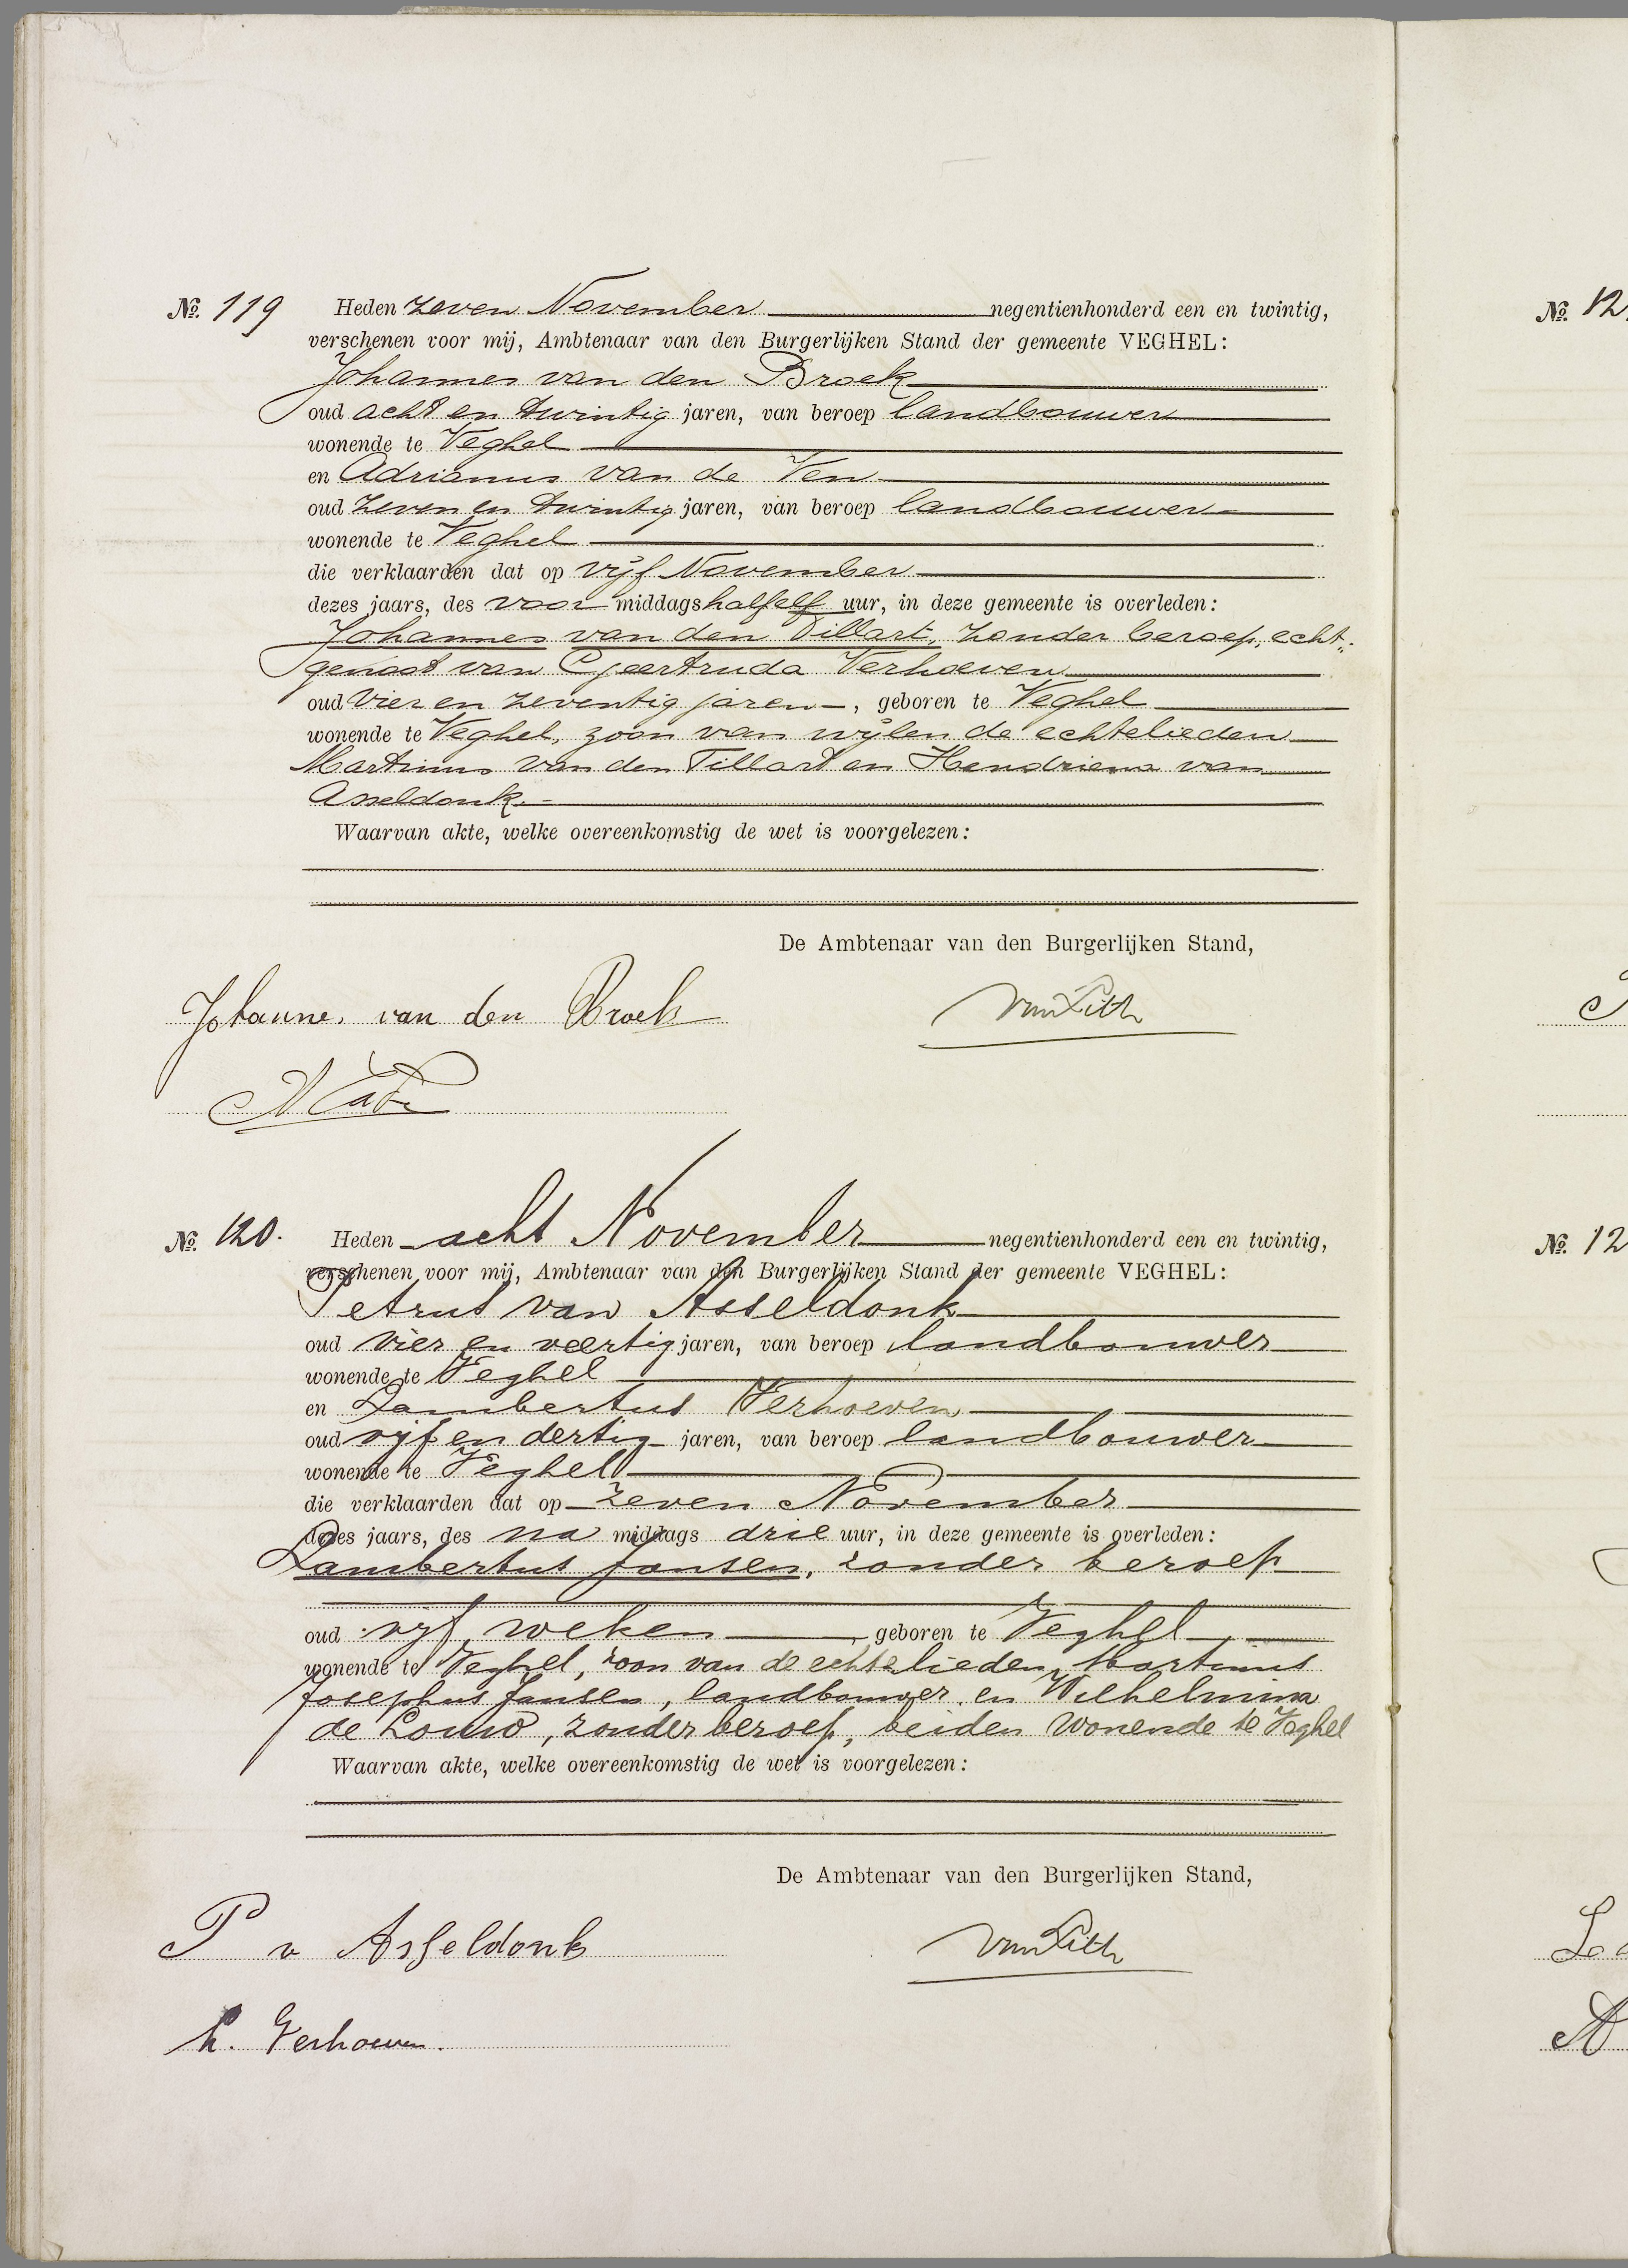 No. 119 Heden zeven November negentienhonderd een en twintig,
verschenen voor mij, Ambtenaar van den Burgerlijken Stand der gemeente VEGHEL:
Johannes van den Broek
oud acht en twintig jaren, van beroep landbouwer
wonende te Veghel
en Adrianus van de Ven
oud zeven en twintig jaren, van beroep landbouwer
wonende te Veghel
die verklaarden dat op vijf November
dezes jaars, des voor middags half elf uur, in deze gemeente is overleden:
Johannes van den Tillart, zonder beroep, echt-
genoot van Geertruda Verhoeven
oud vier en zeventig jaren, geboren te Veghel
wonende te Veghel, zoon van wijlen de echtelieden
Martinus van den Tillart en Hendriena van
Asseldonk.
Waarvan akte, welke overeenkomstig de wet is voorgelezen:
De Ambtenaar van den Burgerlijken Stand,
Johannes van den Broek
van Lith
No. 120. Heden acht November negentienhonderd een en twintig,
verschenen voor mij, Ambtenaar van den Burgerlijken Stand der gemeente VEGHEL:
Petrus van Asseldonk
oud vier en veertig jaren, van beroep landbouwer
wonende te Veghel
en Lambertus Verhoeven
oud vijf en dertig jaren, van beroep landbouwer
wonende te Veghel
die verklaarden dat op zeven November
dezes jaars, des na middags drie uur, in deze gemeente is overleden:
Lambertus Jansen, zonder beroep
oud vijf weken, geboren te Veghel
wonende te Veghel, zoon van de echtelieden Martinus
Josephus Jansen, landbouwer en Wilhelmina
de Louw, zonder beroep, beiden wonende te Veghel
Waarvan akte, welke overeenkomstig de wet is voorgelezen:
De Ambtenaar van den Burgerlijken Stand,
P v Asseldonk
van Lith
L. Verhoeven.
No. 12
No. 12